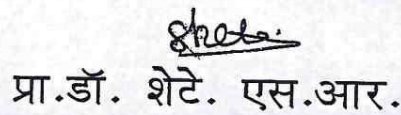 प्रा.डॉ. शेटे. एस.आर.